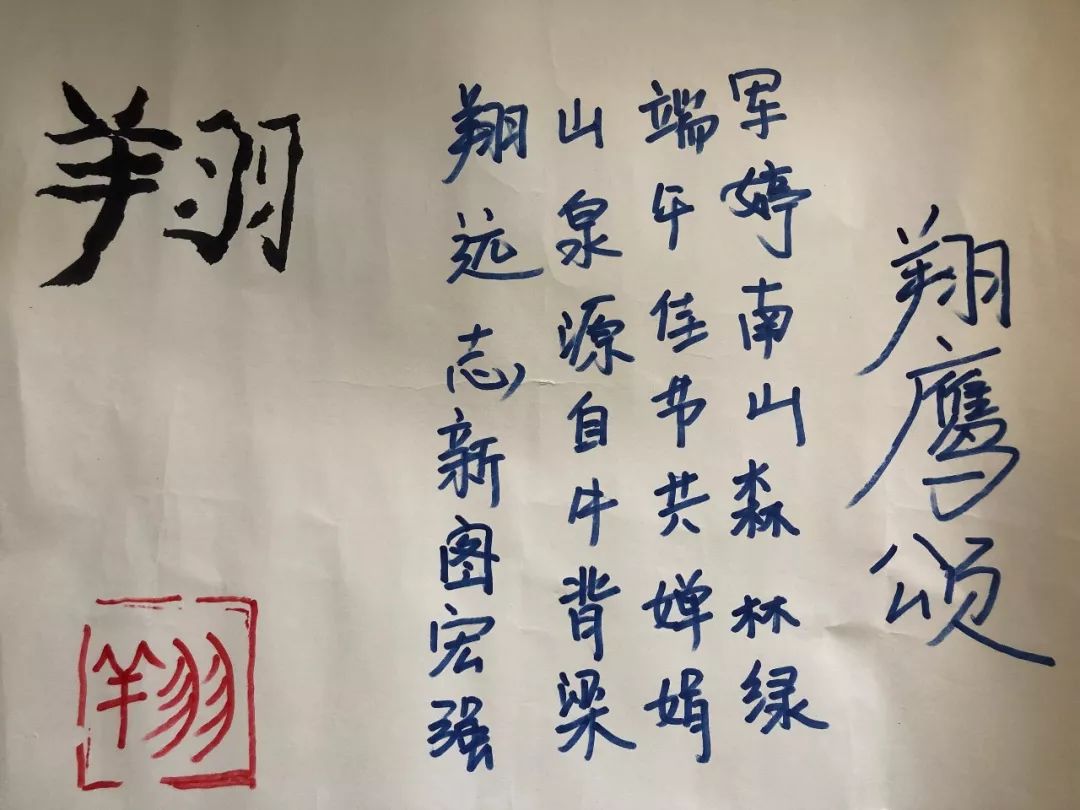 翔鹰颂
军婷南山森林绿
端午佳节共婵娟
山泉源自牛背梁
翔远志新图宏强
翔
翔